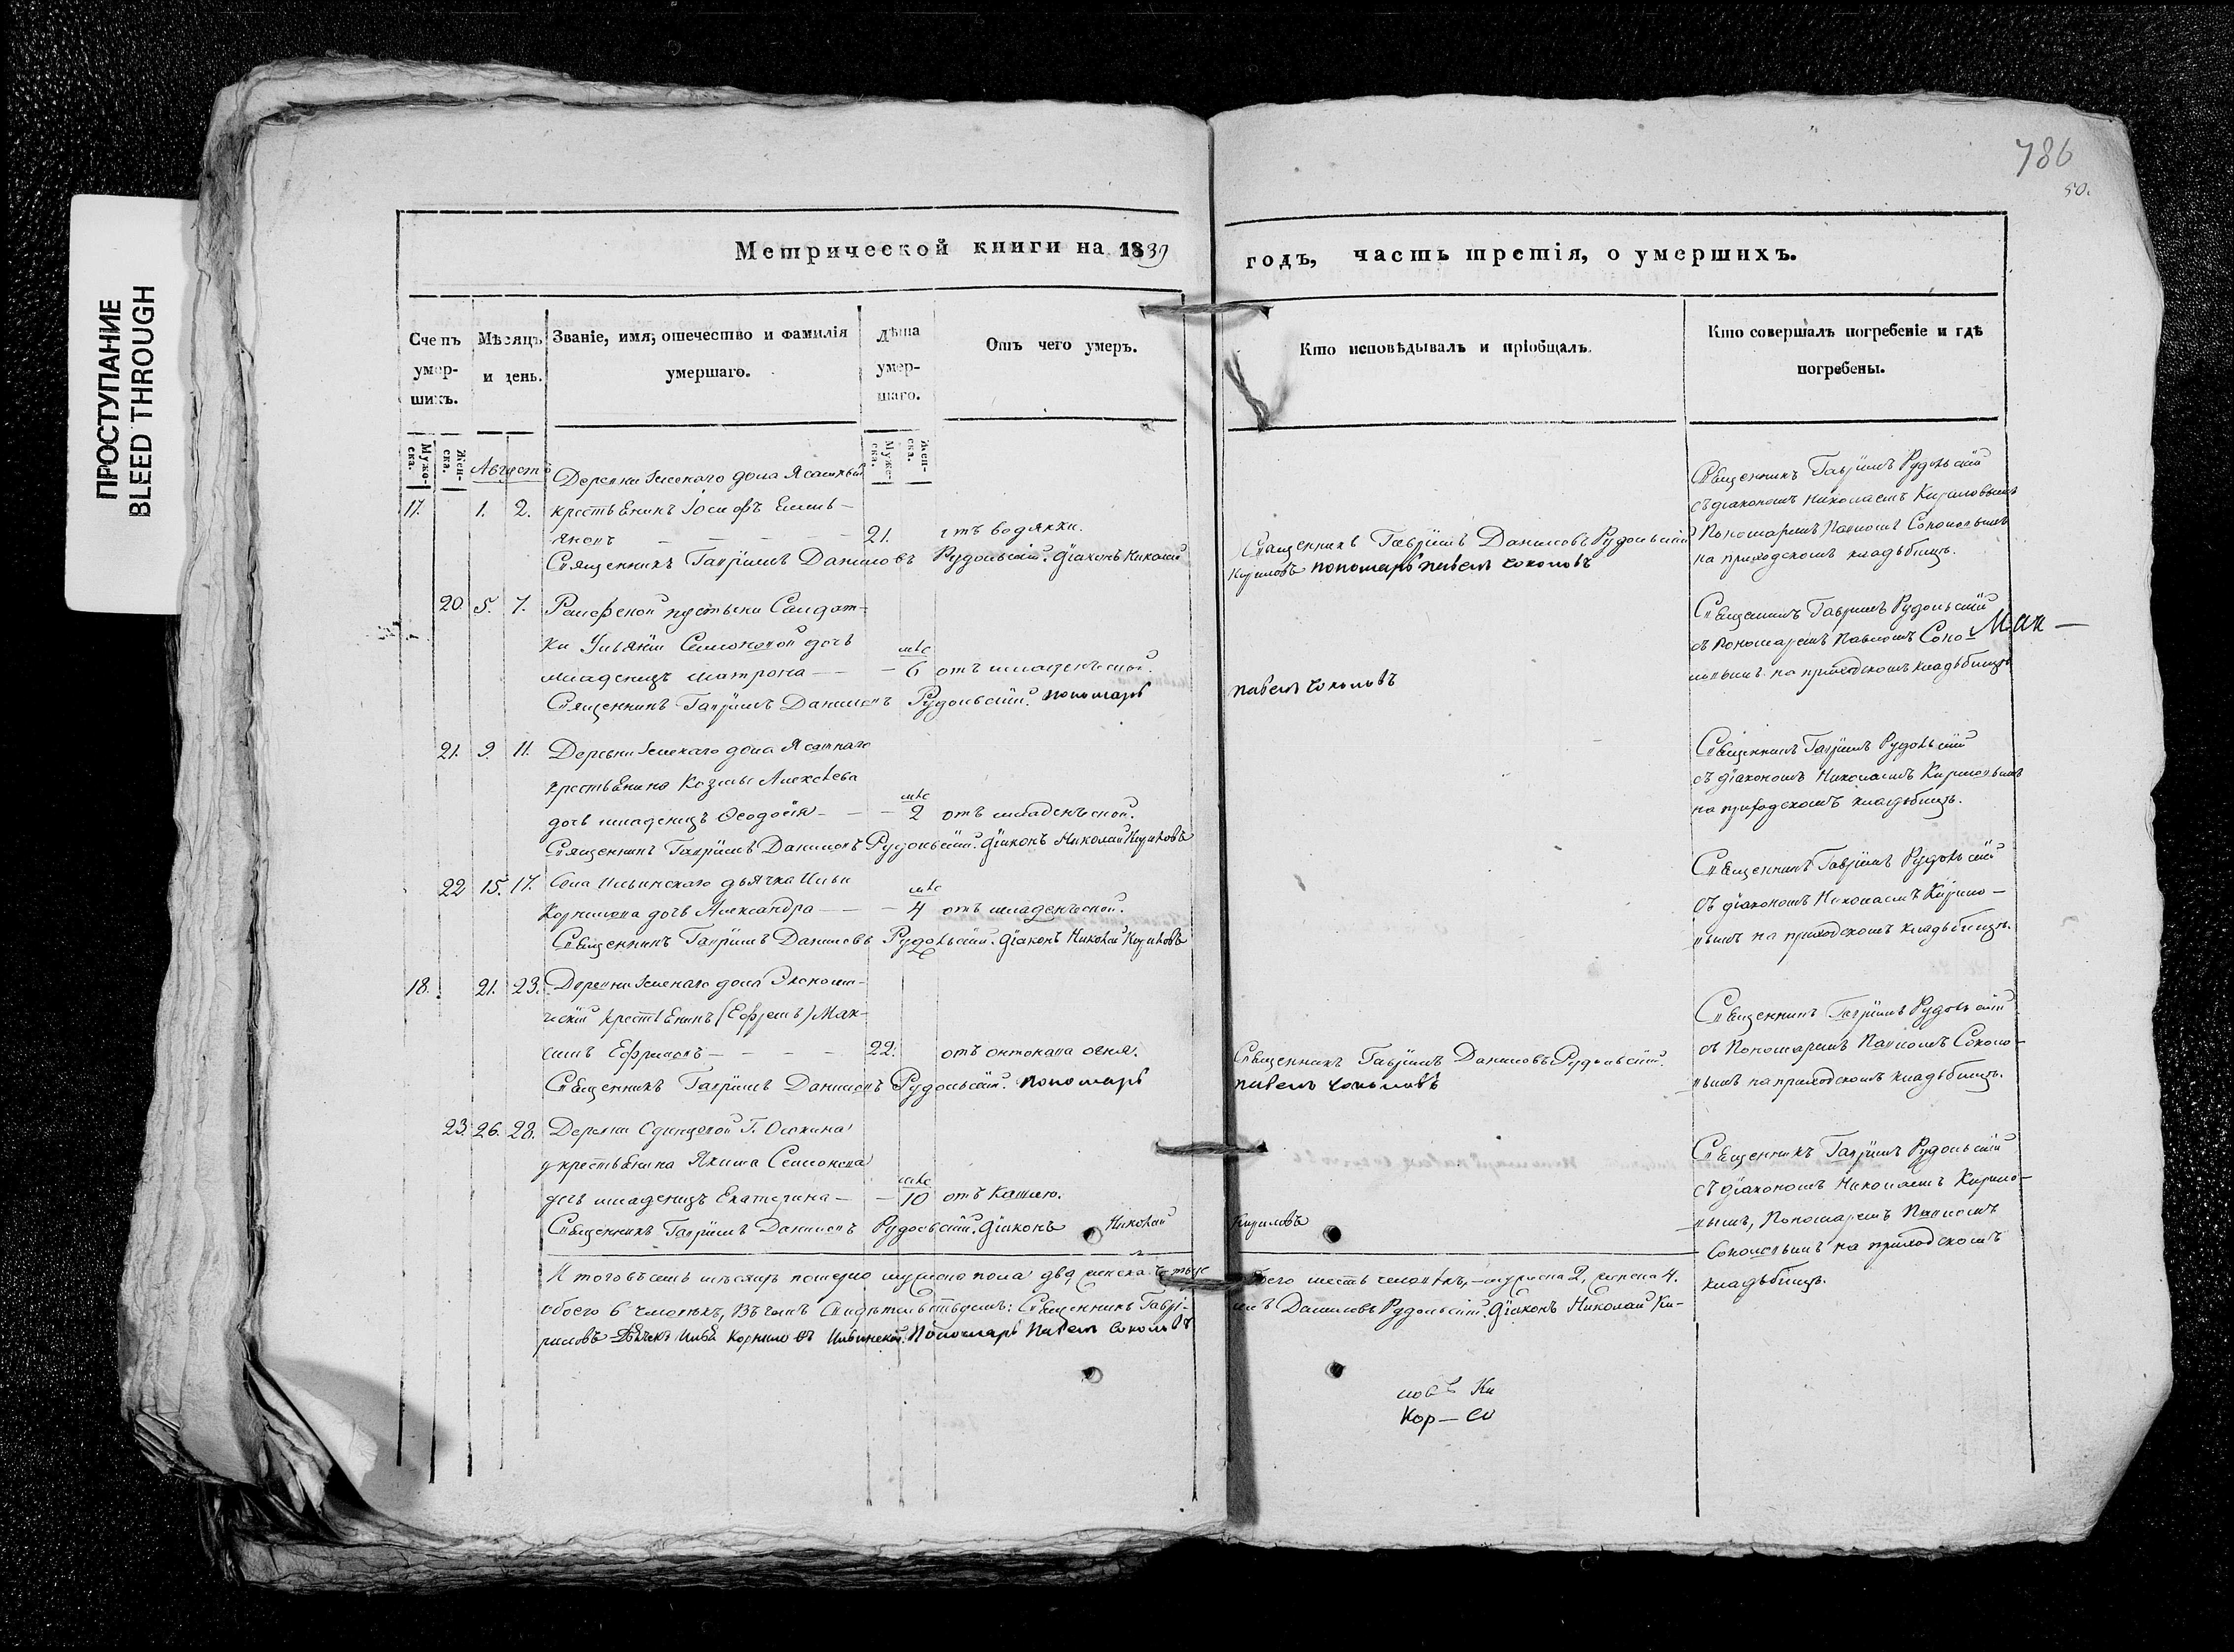 ПРОСТУПАНИЕ
BLEED THROUGH
786
50.
Метрической книги на 1839
годъ, часть третія, о умершихъ.
Счетъ умер-шихъ.
Мѣсяцъ и день.
Званіе, имя, отечество и фамилія умершаго.
Лѣта умер-шаго.
Отъ чего умеръ.
Кто исповѣдывалъ и пріобщалъ.
Кто совершалъ погребеніе и гдѣ погребены.
Муже-ска.
Жен-ска.
Мужес-ка.
Жен-ска.
Августъ
Деревни дола Ясашный
17. 1. 2. крестьянинъ Іосифъ Емель-
яновъ 21. отъ водянки.
Священникъ Гавріилъ Даниловъ Рудольскій. Діаконъ Николай
Священникъ Гавріилъ Даниловъ Рудольскій
Кириловъ пономарь павелъ соколовъ
Священникъ Гавріилъ Рудольскій
съ діакономъ Николаемъ Кириловымъ
Пономаремъ Павломъ Соколовымъ
на приходскомъ кладбищѣ.
20. 5. 7. Раифской пустыни Салдат-
ки Ульяніи Семеновой дочь
младенецъ Матрона мѣс 6 отъ младенческой.
Священникъ Гавріилъ Даниловъ Рудольскій. пономарь
павелъ соколовъ
Священникъ Гавріилъ Рудольскій
съ Пономаремъ Павломъ Соко- Мак-
ловымъ на приходскомъ кладбищѣ
21. 9. 11. Деревни дола Ясашнаго
крестьянина Козмы Алексѣева
дочь младенецъ Ѳеодосія мѣс 2 отъ младенческой.
Священникъ Гавріилъ Даниловъ Рудольскій. Діаконъ Николай Кириловъ
Священникъ Гавріилъ Рудольскій
съ діакономъ Николаемъ Кириловымъ
на приходскомъ кладбищѣ.
22 15. 17. Села Ильинскаго дьячка Ильи
Корнилова дочь Александра мѣс 4 отъ младенческой.
Священникъ Гавріилъ Даниловъ Рудольскій. Діаконъ Николай Кириловъ
Священникъ Гавріилъ Рудольскій
съ діакономъ Николаемъ Кирило-
вымъ на приходскомъ кладбищѣ.
18. 21. 23. Деревни дола Экономи-
ческій крестьянинъ (Ефремъ) Мак-
симъ Ефремовъ 22. отъ антонова огня.
Священникъ Гавріилъ Даниловъ Рудольскій. пономарь
Священникъ Гавріилъ Даниловъ Рудольскій.
павелъ соколовъ
Священникъ Гавріилъ Рудольскій
съ Пономаремъ Павломъ Соколо-
вымъ на приходскомъ кладбищѣ.
23. 26. 28. Деревни Одинцовой Г. Осокина
у крестьянина Якима Семенова
дочь младенецъ Екатерина мѣс 10 отъ кашлю.
Священникъ Гавріилъ Даниловъ Рудольскій. Діаконъ Николай
Кириловъ
Священникъ Гавріилъ Рудольскій
съ діакономъ Николаемъ Кирило-
вымъ, Пономаремъ Павломъ
Соколовымъ на приходскомъ
кладбищѣ.
Итого въ семъ мѣсяцѣ померло мужеска пола два женска четыре
обоего шесть человѣкъ, – мужеска 2, женска 4.
обоего 6 человѣкъ, Въ чемъ свидѣтельствуемъ: Священникъ Гаврі-
илъ Даниловъ Рудольскій. Діаконъ Николай Ки-
риловъ Дьячекъ Илья Корниловъ Ильинской. Пономарь Павелъ Соколовъ
ловъ Ки
Кор – со